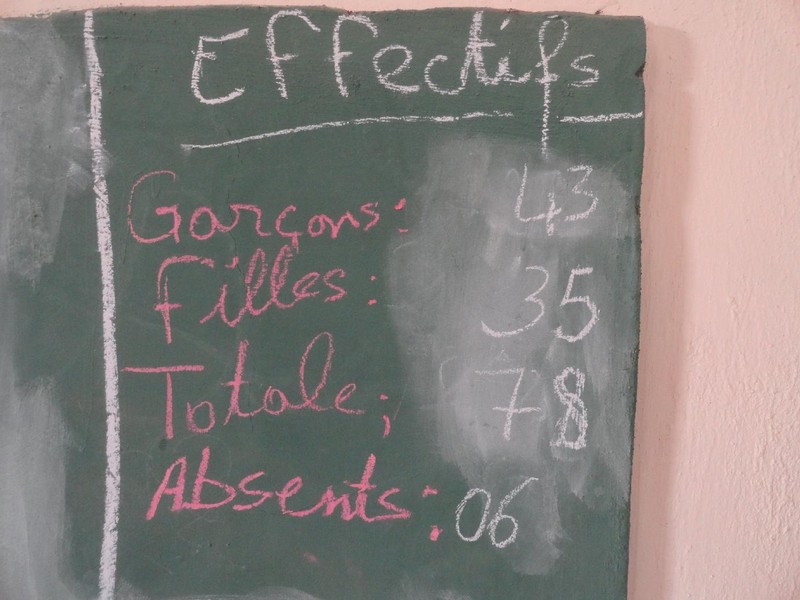 Effectifs
Garçons: 43
Filles: 35
Totale; 78
Absents: 06